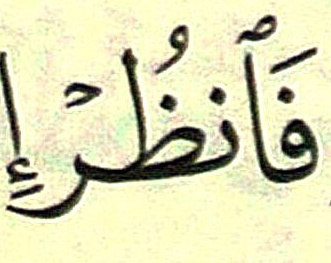 فَٱنظُرْ إِ